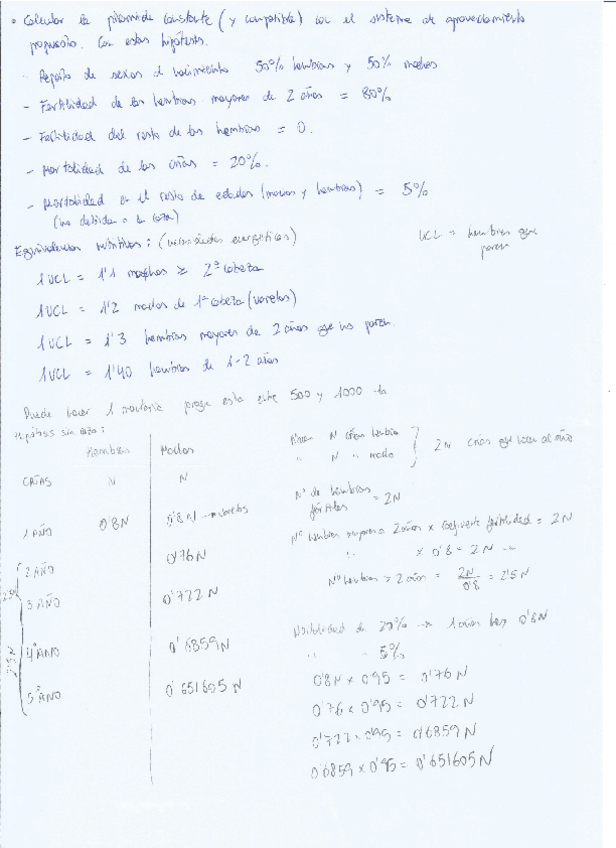 • Calcular la pirámide constante (y compatible) con el sistema de aprovechamiento
propuesto. Con estas hipótesis.
- Reparto de sexos al nacimiento 50% hembras y 50% machos
- Fertilidad de las hembras mayores de 2 años = 80%
- Fertilidad del resto de las hembras = 0.
- Mortalidad de las crías = 20%.
- Mortalidad en el resto de edades (machos y hembras) = 5%
(no debida a la caza)
Equivalencias nutritivas: (necesidades energéticas)
UCL = hembras que
paren
1 UCL = 1'1 machos ≥ 2ª cabeza
1 UCL = 1'2 machos de 1ª cabeza (varetos)
1 UCL = 1'3 hembras mayores de 2 años que no paren.
1 UCL = 1'40 hembras de 1-2 años
Puede haber 1 montería porque está entre 500 y 1000 ha
Hipótesis sin caza:
Hembras
Machos
CRÍAS N N
1 AÑO 0'8N 0'8N → varetos
2 AÑO 0'76N
3 AÑO 0'722N
4º AÑO 0'6859N
5º AÑO 0'651605N
2'5N
N crías hembra
N " macho
2N crías que nacen al año
Nº de hembras
fértiles = 2N
Nº hembras mayores a 2 años x coeficiente fertilidad = 2N
" x 0'8 = 2N →
Nº hembras > 2 años = 2N/0'8 = 2'5N
Mortalidad de 20% → 1 año hay 0'8N
" " 5%
0'8N x 0'95 = 0'76N
0'76 x 0'95 = 0'722N
0'722 x 0'95 = 0'6859N
0'6859 x 0'95 = 0'651605N